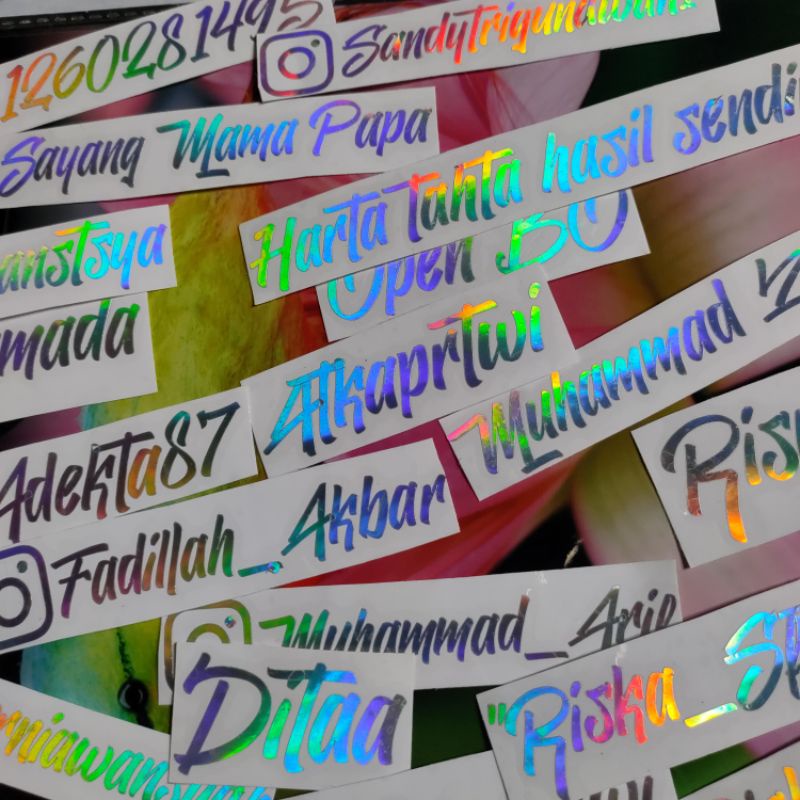 1260281495
Sandytrigunawans
Sayang Mama Papa
Harta tahta hasil sendi
anstsya
Open BO
mada
Atkaprtwi
Muhammad
Adekta87
Ris
Fadillah_Akbar
Muhammad_Arie
Ditaa
"Riska_S
rniawansyah